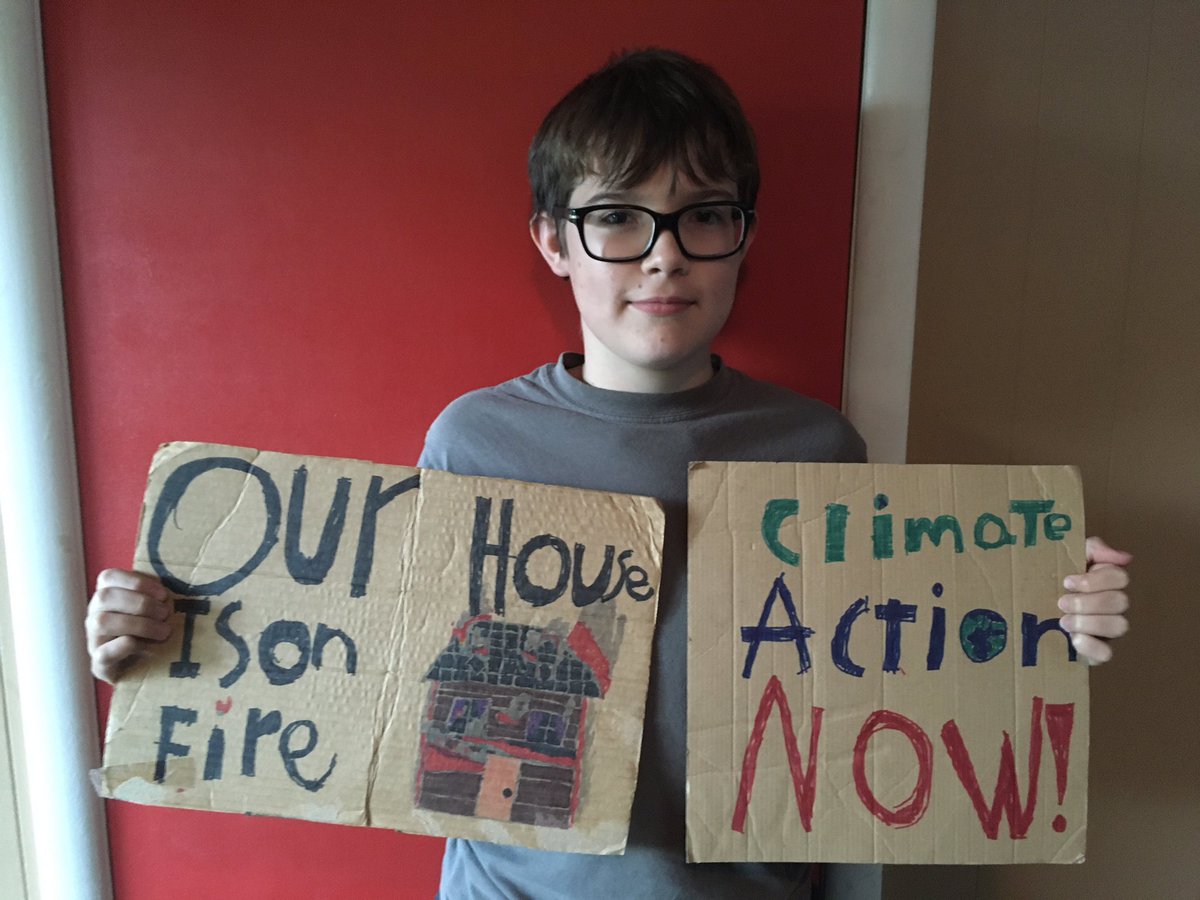 Our House
Is on
Fire
Climate
Action
Now!